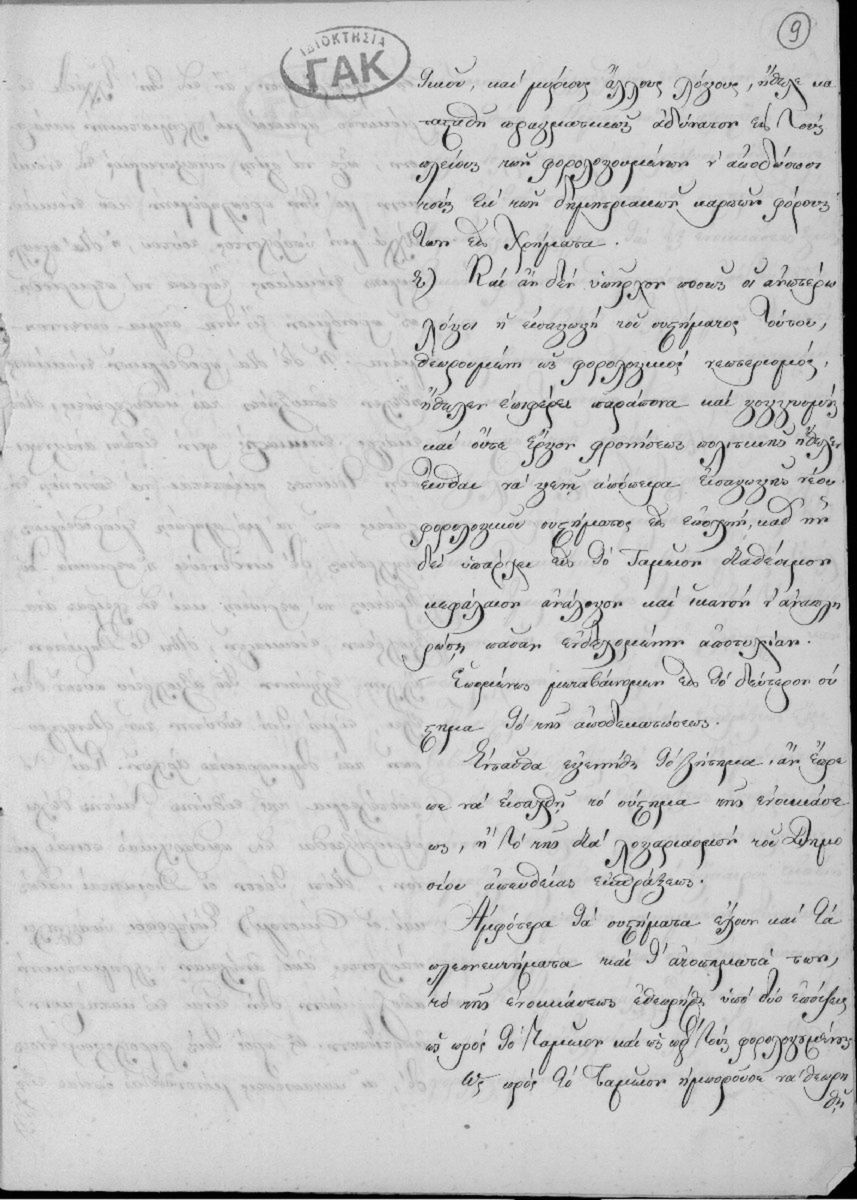 9
ΙΔΙΟΚΤΗΣΙΑ
ΓΑΚ
τικοῦ, καὶ μυρίους ἄλλους λόγους, ἤθελε κα
ταστηθῆ πραγματικῶς ἀδύνατον εἰς τοὺς
πλείους τῶν φορολογουμένων ν' ἀποδώσωσι
τοὺς ἐκ τῶν δημητριακῶν καρπῶν φόρους
των εἰς χρήματα.
2) Καὶ ἂν δὲν ὑπῆρχον ποσῶς οἱ ἀνωτέρω
λόγοι ἡ εἰσαγωγὴ τοῦ συστήματος τούτου,
θεωρουμένη ὡς φορολογικὸς νεωτερισμός,
ἤθελεν ἐπιφέρει παράπονα καὶ γογγυσμοὺς
καὶ οὔτε ἔργον φρονήσεως πολιτικῆς ἤθελεν
εἶσθαι νὰ γενῇ ἀπόπειρα εἰσαγωγῆς νέου
φορολογικοῦ συστήματος εἰς ἐποχήν, καθ' ἣν
δὲν ὑπάρχει εἰς τὸ Ταμεῖον διαθέσιμον
κεφάλαιον ἀνάλογον καὶ ἱκανὸν ν' ἀναπλη
ρώσῃ πᾶσαν ἐνδεχομένην ἀποτυχίαν.
Ἑπομένως μεταβαίνομεν εἰς τὸ δεύτερον σύ
στημα τὸ τῆς ἀποδεκατώσεως.
Ἐνταῦθα ἐγεννήθη τὸ ζήτημα, ἂν ἔπρε
πε νὰ εἰσαχθῇ τὸ σύστημα τῆς ἐνοικιάσε
ως, ἢ τὸ τῆς διὰ λογαριασμὸν τοῦ Δημο
σίου ἀπευθείας εἰσπράξεως.
Ἀμφότερα τὰ συστήματα ἔχουν καὶ τὰ
πλεονεκτήματα καὶ τ' ἀτοπήματά των,
τὸ τῆς ἐνοικιάσεως ἐθεωρήθη ὑπὸ δύο ἐπόψεις
ὡς πρὸς τὸ Ταμεῖον καὶ ὡς πρὸς τοὺς φορολογουμένους
Ὡς πρὸς τὸ Ταμεῖον ἠμποροῦσε νὰ θεωρη
θῇ